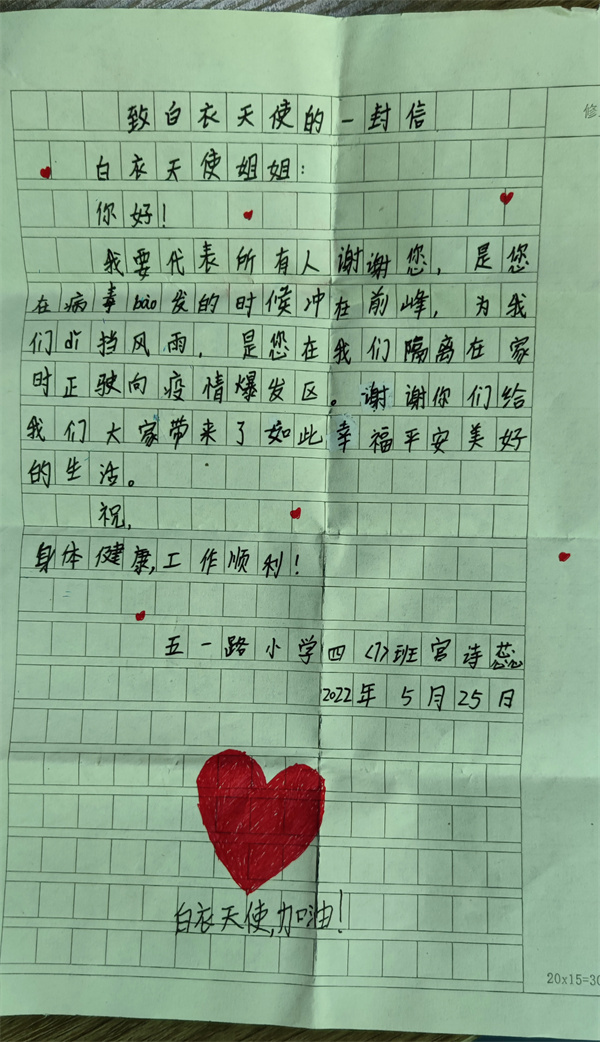 致白衣天使的一封信
修
白衣天使姐姐：
你好！
我要代表所有人谢谢您，是您
在病毒bào发的时候冲在前峰，为我
们dǐ挡风雨，是您在我们隔离在家
时正驶向疫情爆发区。谢谢你们给
我们大家带来了如此幸福平安美好
的生活。
祝，
身体健康，工作顺利！
五一路小学四〈7〉班宫诗蕊
2022年5月25日
白衣天使，加油！
20x15=30